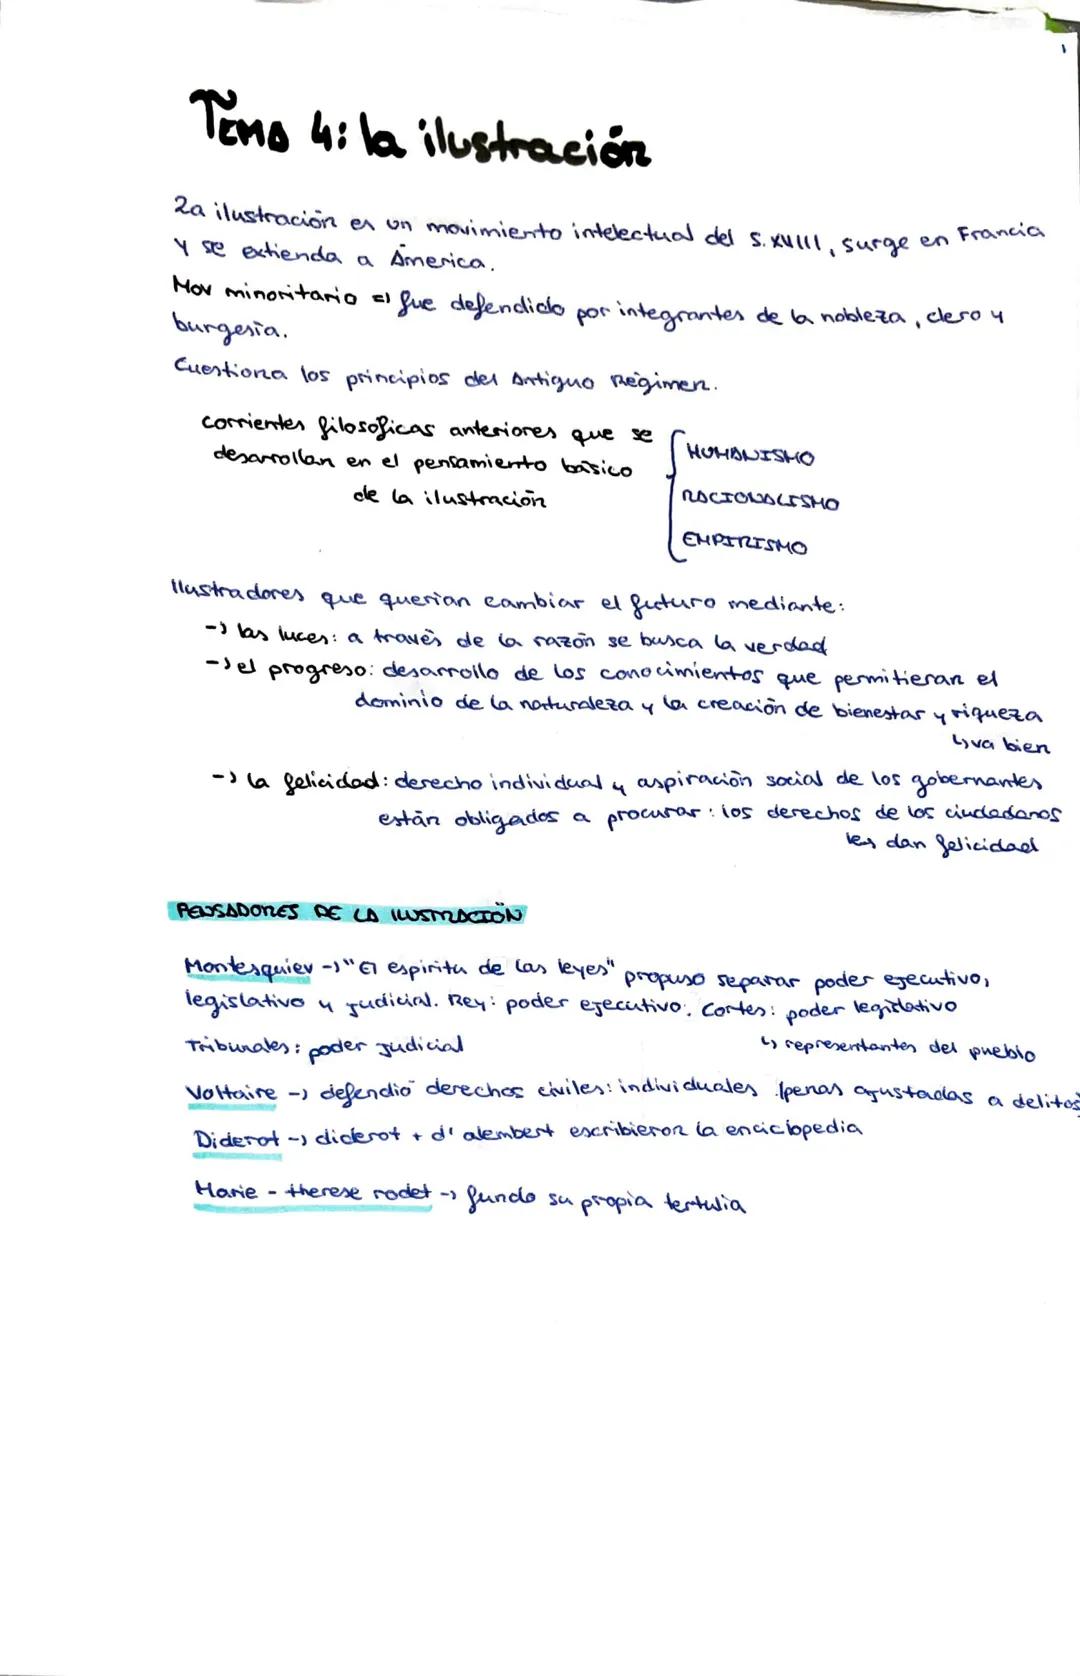 Tema 4: la ilustración
La ilustración es un movimiento intelectual del s. XVIII, surge en Francia
y se extienda a America.
Mov minoritario => fue defendido por integrantes de la nobleza, clero y
burgesía.
Cuestiona los principios del Antiguo Régimen.
corrientes filosoficas anteriores que se
desarrollan en el pensamiento básico
de la ilustración
HUMANISMO
RACIONALISMO
EMPIRISMO
Ilustradores que querían cambiar el futuro mediante:
-> las luces: a través de la razón se busca la verdad
-> el progreso: desarrollo de los conocimientos que permitieran el
dominio de la naturaleza y la creación de bienestar y riqueza
↳ va bien
-> la felicidad: derecho individual y aspiración social de los gobernantes
están obligados a procurar: los derechos de los ciudadanos
les dan felicidad
PENSADORES DE LA ILUSTRACIÓN
Montesquieu -> "El espiritu de las leyes" propuso separar poder ejecutivo,
legislativo y judicial. Rey: poder ejecutivo. Cortes: poder legislativo
Tribunales: poder judicial ↳ representantes del pueblo
Voltaire -> defendió derechos civiles: individuales (penas ajustadas a delitos
Diderot -> diderot + d'alembert escribieron la enciclopedia
Marie - therese rodet -> fundo su propia tertulia